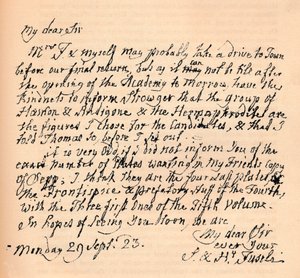 My dear Sir
Mrs F & myself may probably take a drive to Town
before our final return, but as it may not be till after
can
the opening of the Academy to morrow have the
kindness to inform Strowger that the group of
Hæmon & Antigone & the Hermaphrodite are
the figures I chose for the Candidates, & that I
told Thomas so before I set out.
it is very odd if I did not inform You of the
exact number of Plates wanting in My Friends Copy
of Depp; I think they are the four last plates of
the Frontispice & prefatory of the Fourth,
with the Three first Ones of the Fifth Volume.
In hopes of Seeing You Soon, we are
My dear Sir
ever Your
S & Hy Fuseli
Monday 29 Sept. 23.